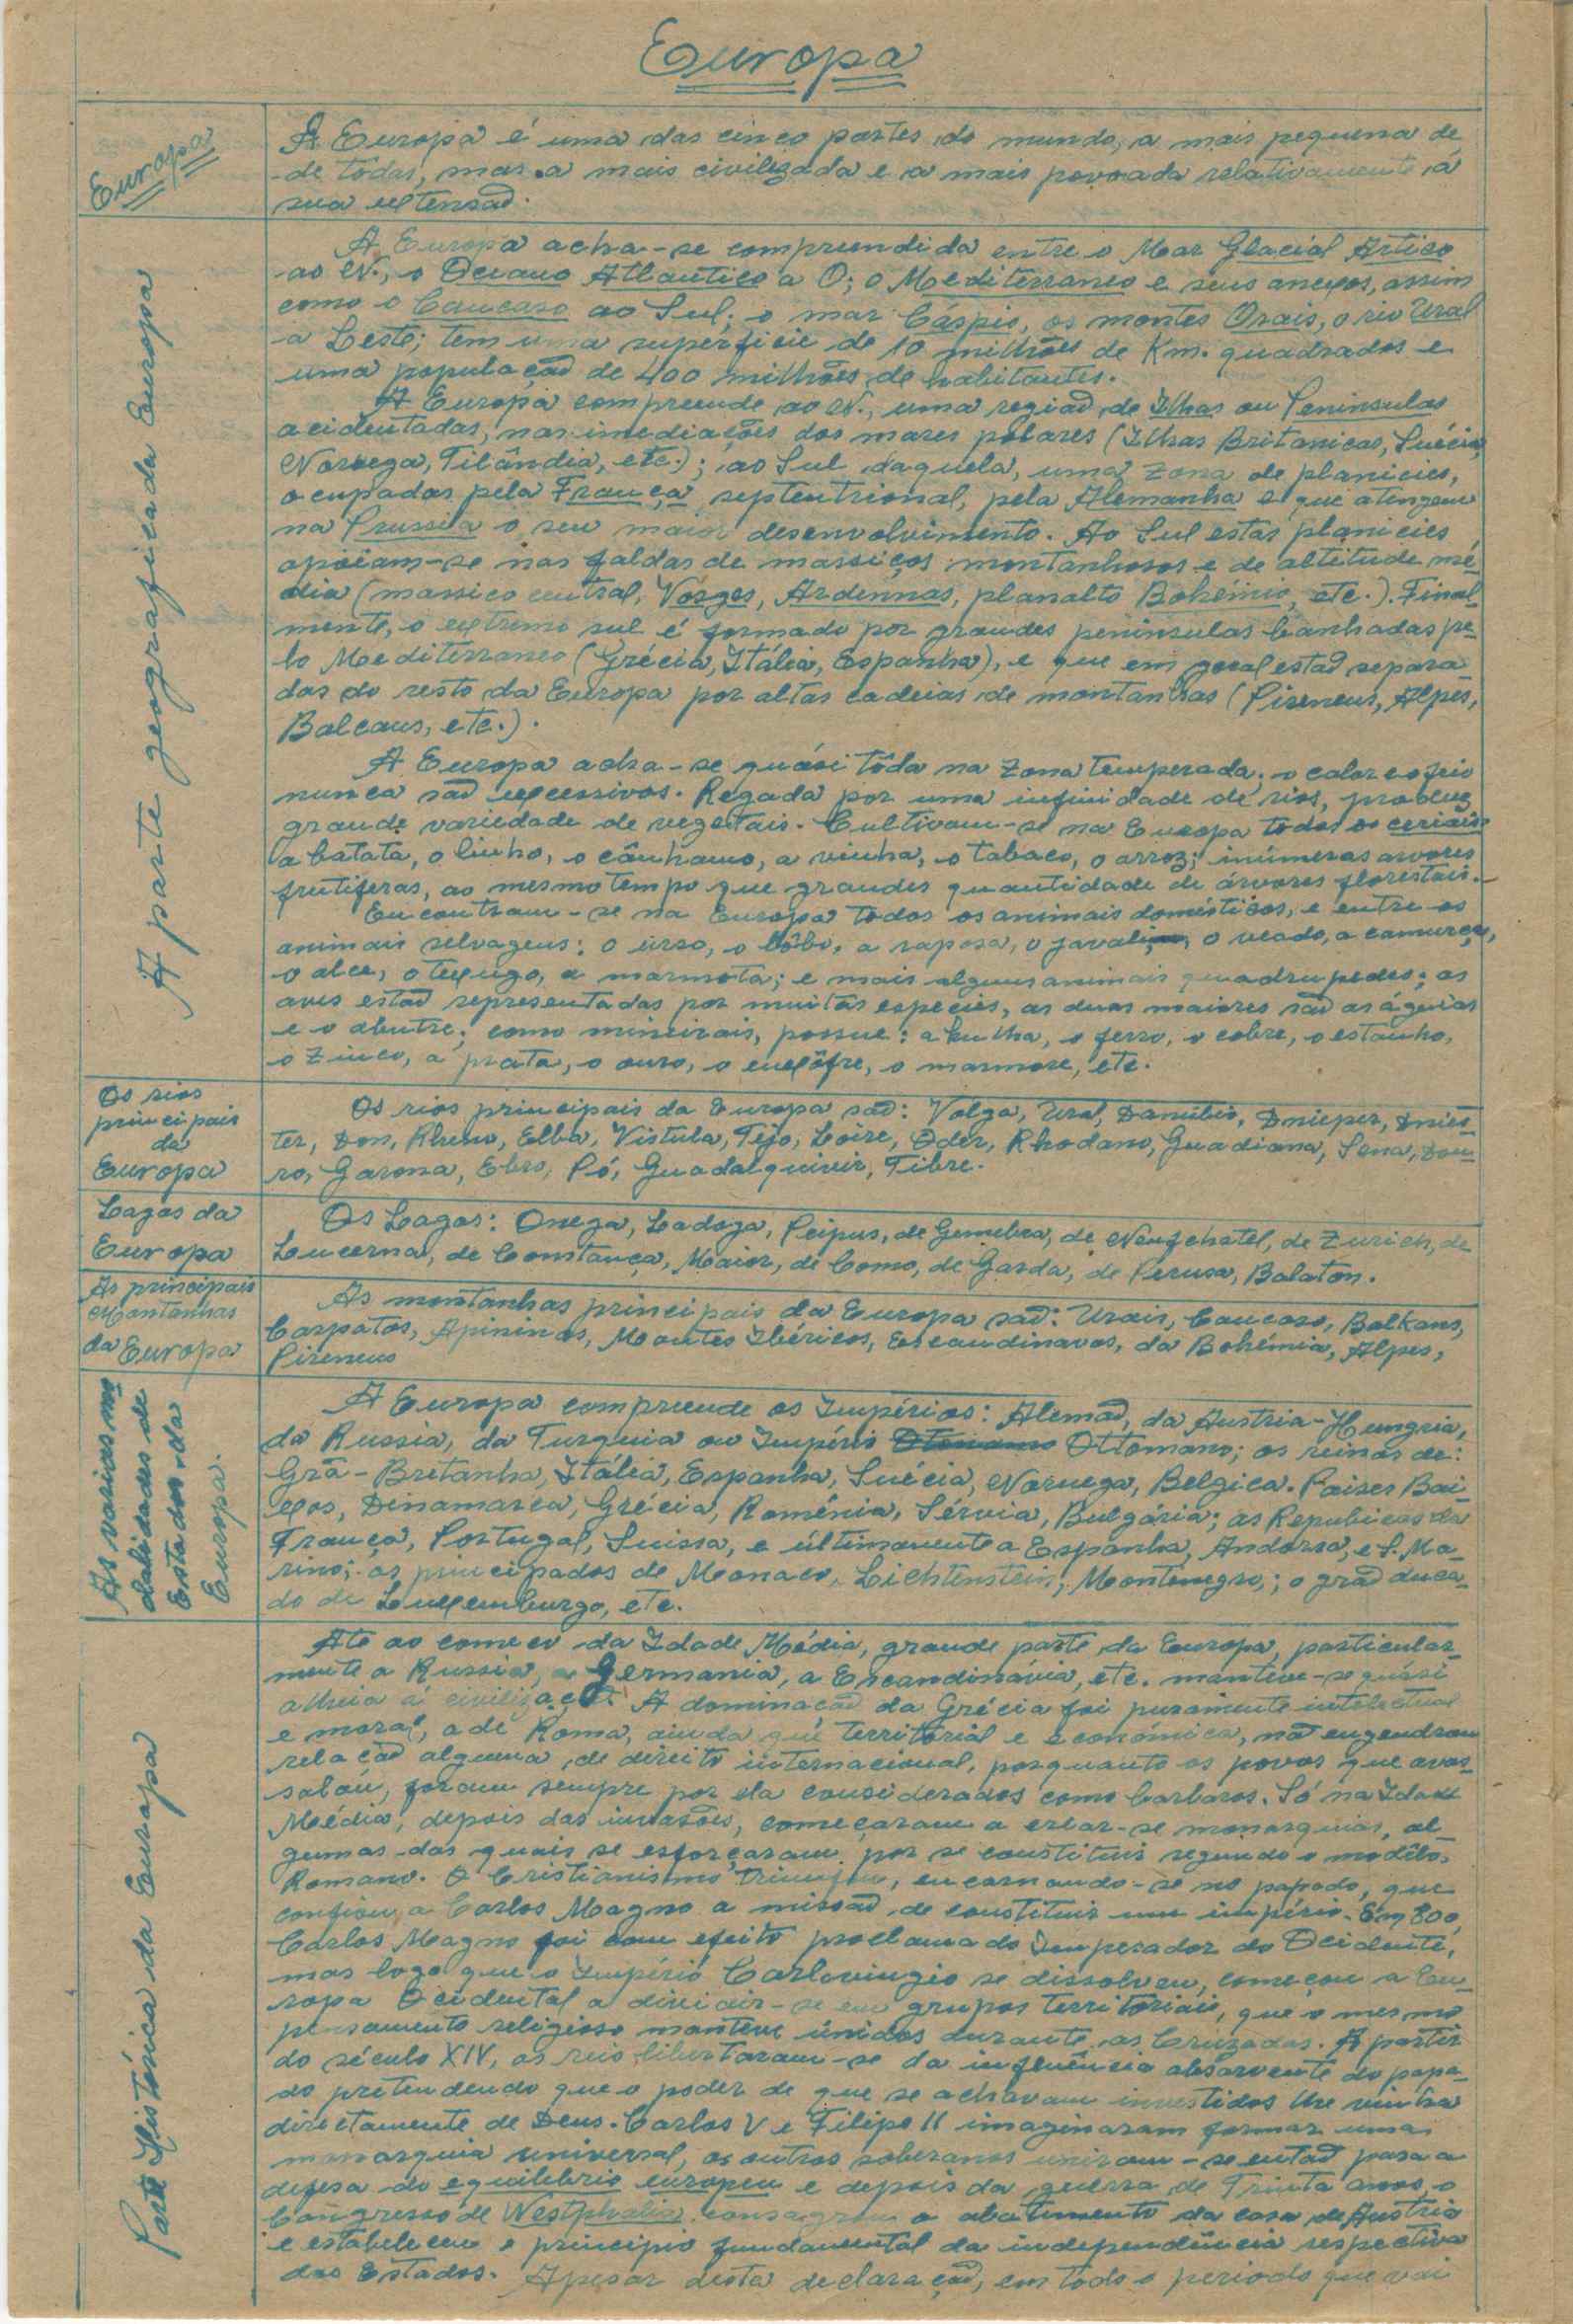 Europa
Europa
A Europa é uma das cinco partes do mundo, a mais pequena de
de todas, mas a mais civilizada e a mais povoada relativamente á
sua extensaõ.
A parte geografica da Europa
A Europa acha-se compreendida entre o Mar Glacial Artico
ao N., o Oceano Atlantico a O; o Mediterraneo e seus anexos, assim
como o Caucaso ao Sul; o mar Cáspio, os montes Orais, o rio Ural
a Leste; tem uma superficie de 10 milhões de Km. quadrados e
uma populaçaõ de 400 milhões de habitantes.
A Europa compreende ao N., uma regiaõ de Ilhas ou Peninsulas
acidentadas, nas imediações dos mares polares (Ilhas Britanicas, Suécia,
Noruega, Tilândia, etc.); ao Sul daquela, uma zona de planicies,
ocupadas pela França septentrional, pela Alemanha e que atengem
na Prussia o seu maior desenvolvimento. Ao Sul estas planicies
apoiam-se nas faldas de massiços montanhosos e de altitude mé-
dia (massico central, Vosges, Ardennas, planalto Bohémio, etc.). Final-
mente, o extremo sul é formado por grandes peninsulas banhadas pe-
lo Mediterraneo (Grécia, Itália, Espanha), e que em geral estaõ separa-
das do resto da Europa por altas cadeias de montanhas (Pireneus, Alpes,
Balcans, etc.).
A Europa acha-se quási tôda na zona temperada; o calor e o frio
nunca saõ excessivos. Regada por uma infinidade de rios, produz
grande variedade de vegetais. Cultivam-se na Europa todos os ceriais
a batata, o linho, o cânhamo, a vinha, o tabaco, o arroz; inúmeras arvores
frutiferas, ao mesmo tempo que grandes quantidade de árvores florestais.
Encontram-se na Europa todos os animais domésticos, e entre os
animais selvagens: o urso, o lôbo, a raposa, o javali, o veado, a camurça,
o alce, o texugo, a marmota; e mais alguns animais quadrupedes; as
aves estaõ representadas por muitas especies, as duas maiores saõ as águias
e o abutre; como minerais, possue: a hulha, o ferro, o cobre, o estanho,
o zinco, a prata, o ouro, o enxôfre, o marmore, etc.
Os rios
principais
da
Europa
Os rios principais da Europa saõ: Volga, Ural, Danúbio, Dnieper, Dnies-
ter, Don, Rheno, Elba, Vistula, Tejo, Loire, Oder, Rhodano, Guadiana, Sena, Dou-
ro, Garona, Ebro, Pó, Guadalquivir, Tibre.
Lagos da
Europa
Os Lagos: Onega, Ladoga, Peipus, de Genebra, de Neufchatel, de Zurich, de
Lucerna, de Constança, Maior, de Como, de Garda, de Perusa, Balaton.
As principais
Montanhas
da Europa
As montanhas principais da Europa saõ: Urais, Caucaso, Balkans,
Carpatos, Apininos, Montes Ibéricos, Escandinavos, da Bohémia, Alpes,
Pireneus
As varias mo-
dalidades de
Estados da
Europa.
A Europa compreende os Impérios: Alemaõ, da Austria-Hungria,
da Russia, da Turquia ou Império Ottomano; os reinos de:
Grã-Bretanha, Itália, Espanha, Suécia, Noruega, Belgica. Paises Bai-
xos, Dinamarca, Grécia, Roménia, Sérvia, Bulgária; as Republicas da
França, Portugal, Suissa, e últimamente a Espanha, Andorra, e S. Ma-
rino; os principados de Monaco, Lichtenstein, Montenegro; o graõ duca-
do de Luxemburgo, etc.
Parte Histórica da Europa
Até ao comeco da Idade Média, grande parte da Europa, particular-
mente a Russia, a Germania, a Escandinávia, etc. manteve-se quási
alheia á civilização. A dominaçaõ da Grécia foi puramente intelectual
e moral, a de Roma, ainda que territorial e económica, naõ engendrou
relaçaõ alguma de direito internacional, porquanto os povos que avas-
salou, foram sempre por ela considerados como barbaros. Só na Idade
Média, depois das invasões, começaram a criar-se monarquias, al-
gumas das quais se esforçaram por se constituir segundo o modêlo,
Romano. O Cristianismo triunfou, encarnando-se no papado, que
confiou a Carlos Magno a missaõ de constituir um império. Em 800,
Carlos Magno foi com efeito proclamado Imperador do Ocidente,
mas logo que o Império Carlovingio se dissolveu, começou a Eu-
ropa Ocidental a dividir-se em grupos territoriais, que o mesmo
pensamento religioso manteve únidos durante as Cruzadas. A partir
do século XIV, os reis libertaram-se da influência absorvente do papa-
do pretendendo que o poder de que se achavam investidos lhe vinha
directamente de Deus. Carlos V e Filipe II imaginaram formar uma
monarquia universal, os outros soberanos uniram-se entaõ para a
defesa do equilibrio europeu e depois da guerra de Trinta anos, o
Congresso de Westphalia consagrou o abatimento da casa de Austria
e estabeleceu o principio fundamental da independência respectiva
dos Estados. Apesar desta declaraçaõ, em todo o periodo que vai